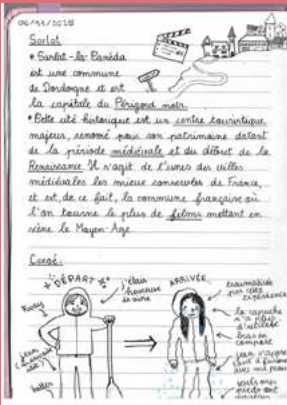 06/11/2025
Sarlat
• Sarlat-la-Canéda
est une commune
de Dordogne et est
la capitale du Périgord noir.
• Cette cité historique est un centre touristique
majeur, renomé pour son patrimoine datant
de la période médiévale et du début de la
Renaissance. Il s'agit de l'unes des villes
médiévales les mieux conservées de France,
et est, de ce fait, la commune française où
l'on tourne le plus de films mettant en
scène le Moyen-Age.
DÉPART
j'étais
heureuse
ARRIVÉE
traumatisée
par cette
expérience
la capuche
n'a plus
d'utilité
bras en
compote
jean